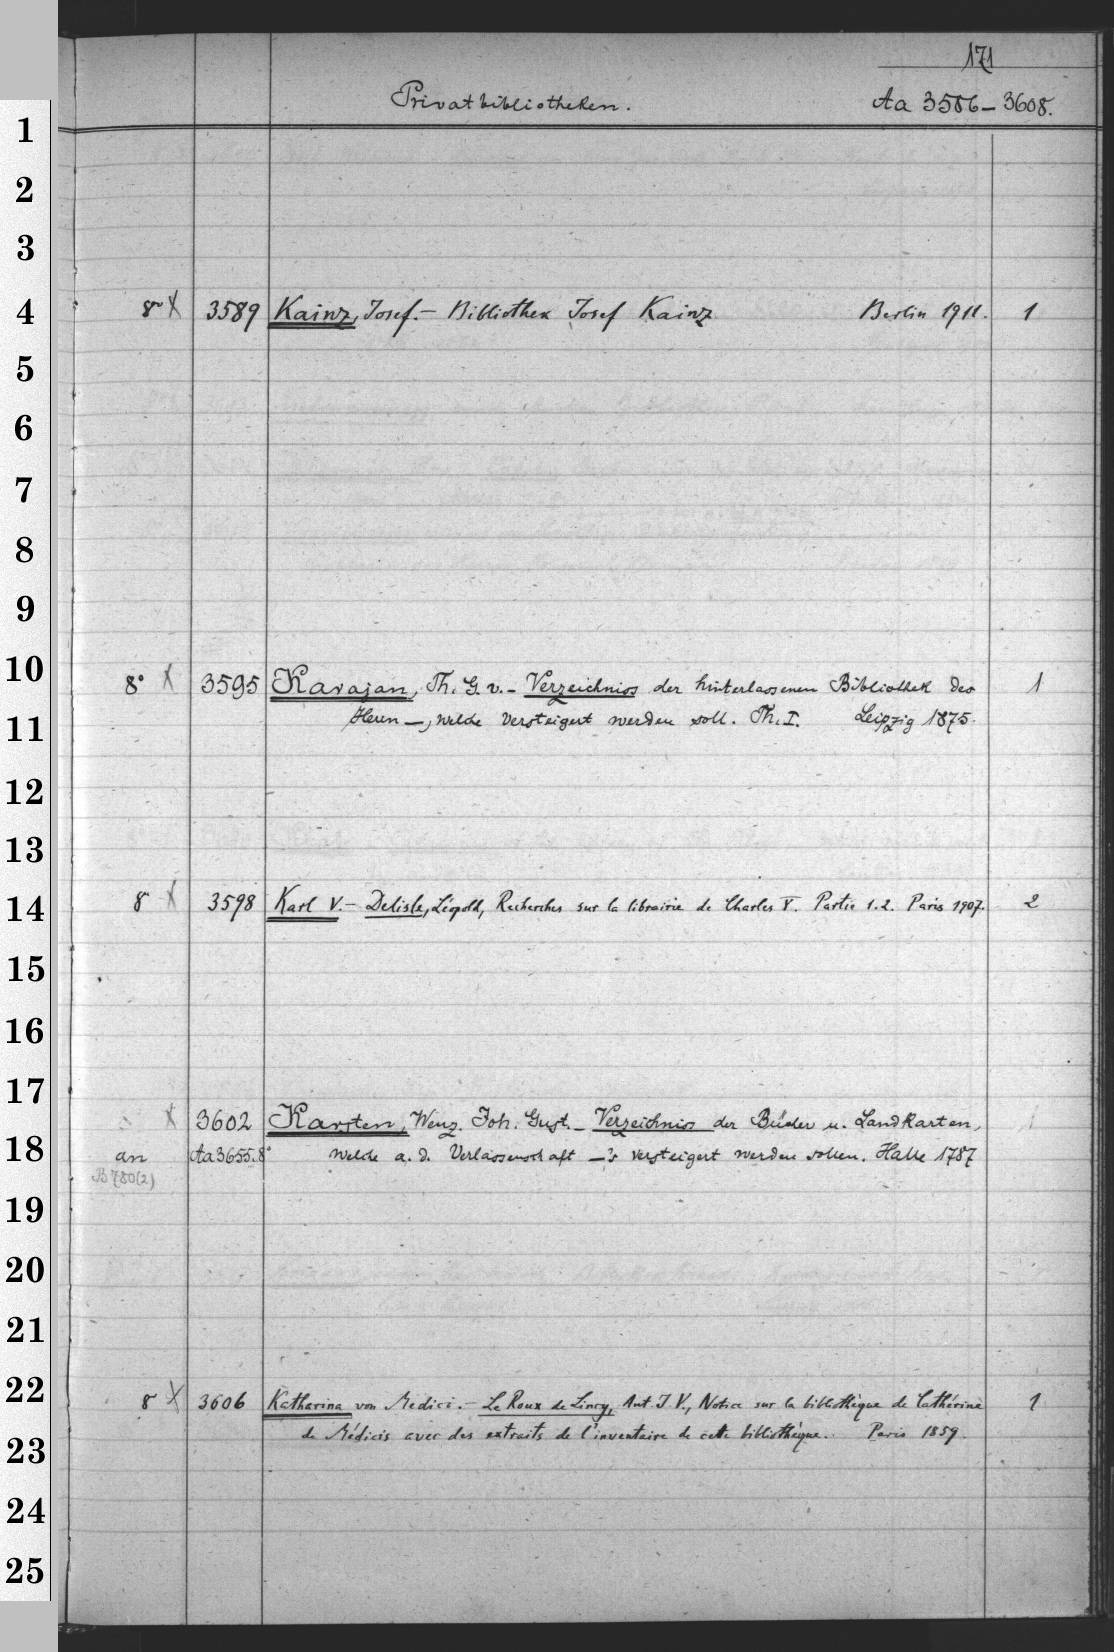 171
Privatbibliotheken. Aa 3586-3608.
1
2
3
4
8° X 3589 Kainz, Josef. - Bibliothek Josef Kainz Berlin 1911. 1
5
6
7
8
9
10
8° X 3595 Karajan, Th. G. v. - Verzeichnios der hinterlassenen Bibliothek des 1
Herrn —, welche versteigert werden soll. Th. I. Leipzig 1875.
11
12
13
14
8 X 3598 Karl V. - Delisle, Léopold, Recherches sur la librairie de Charles V. Partie 1.2. Paris 1907. 2
15
16
17
X 3602 Karsten, Wenz. Joh. Gust. - Verzeichnis der Bücher u. Landkarten, 1
18
an Aa 3655.8° welche a. d. Verlassenschaft —'s versteigert werden sollen. Halle 1787
B 780(2)
19
20
21
22
8 X 3606 Katharina von Medici. - Le Roux de Lincy, Ant. J. V., Notice sur la bibliothèque de Cathérine 1
23
de Médicis avec des extraits de l'inventaire de cette bibliothèque. Paris 1859.
24
25